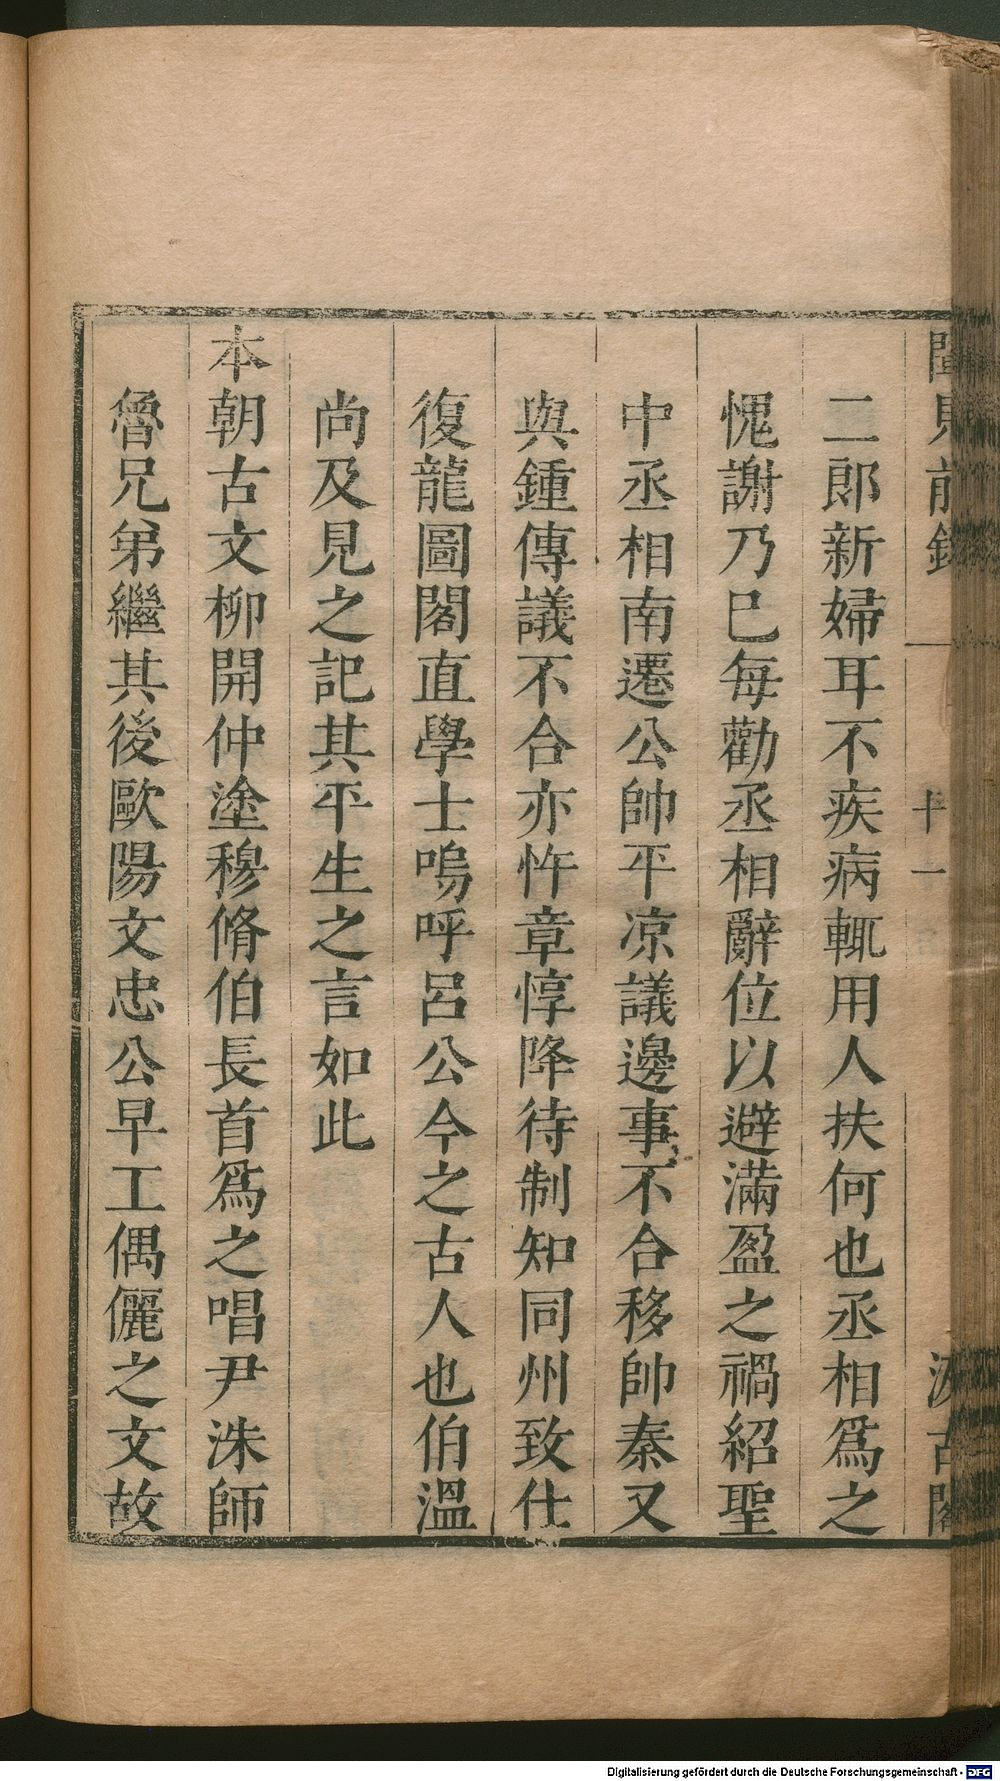 聞見前錄
十一
汲古閣
二郎新婦耳不疾病輒用人扶何也丞相爲之
愧謝乃已每勸丞相辭位以避滿盈之禍紹聖
中丞相南遷公帥平凉議邊事不合移帥秦又
與鍾傳議不合亦忤章惇降待制知同州致仕
復龍圖閣直學士嗚呼呂公今之古人也伯溫
尚及見之記其平生之言如此
本朝古文柳開仲塗穆脩伯長首爲之唱尹洙師
魯兄弟繼其後歐陽文忠公早工偶儷之文故
Digitalisierung gefördert durch die Deutsche Forschungsgemeinschaft - DFG